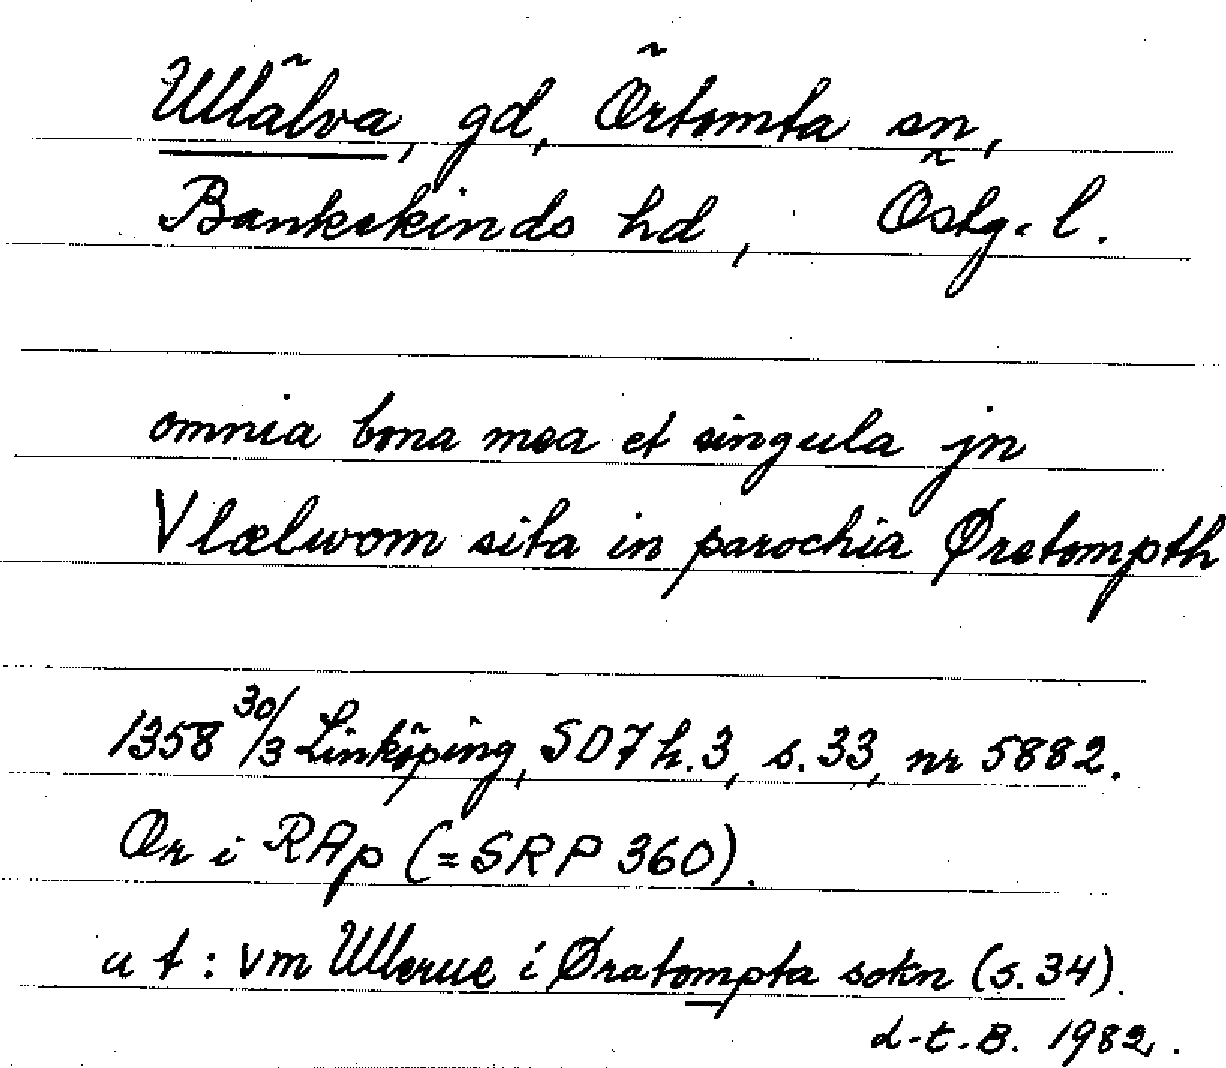 Ullälva, gd, Örtomta sn,
Bankekinds hd, Östg. l.
omnia bona mea et singula jn
Vlælwom sita in parochia Ørstompth
1358 30/3 Linköping, SD7 h.3, s.33, nr 5882.
Or i RAp (=SRP 360).
a t : vm Ullerue i Øratompta sokn (s. 34).
L-E-B. 1982.